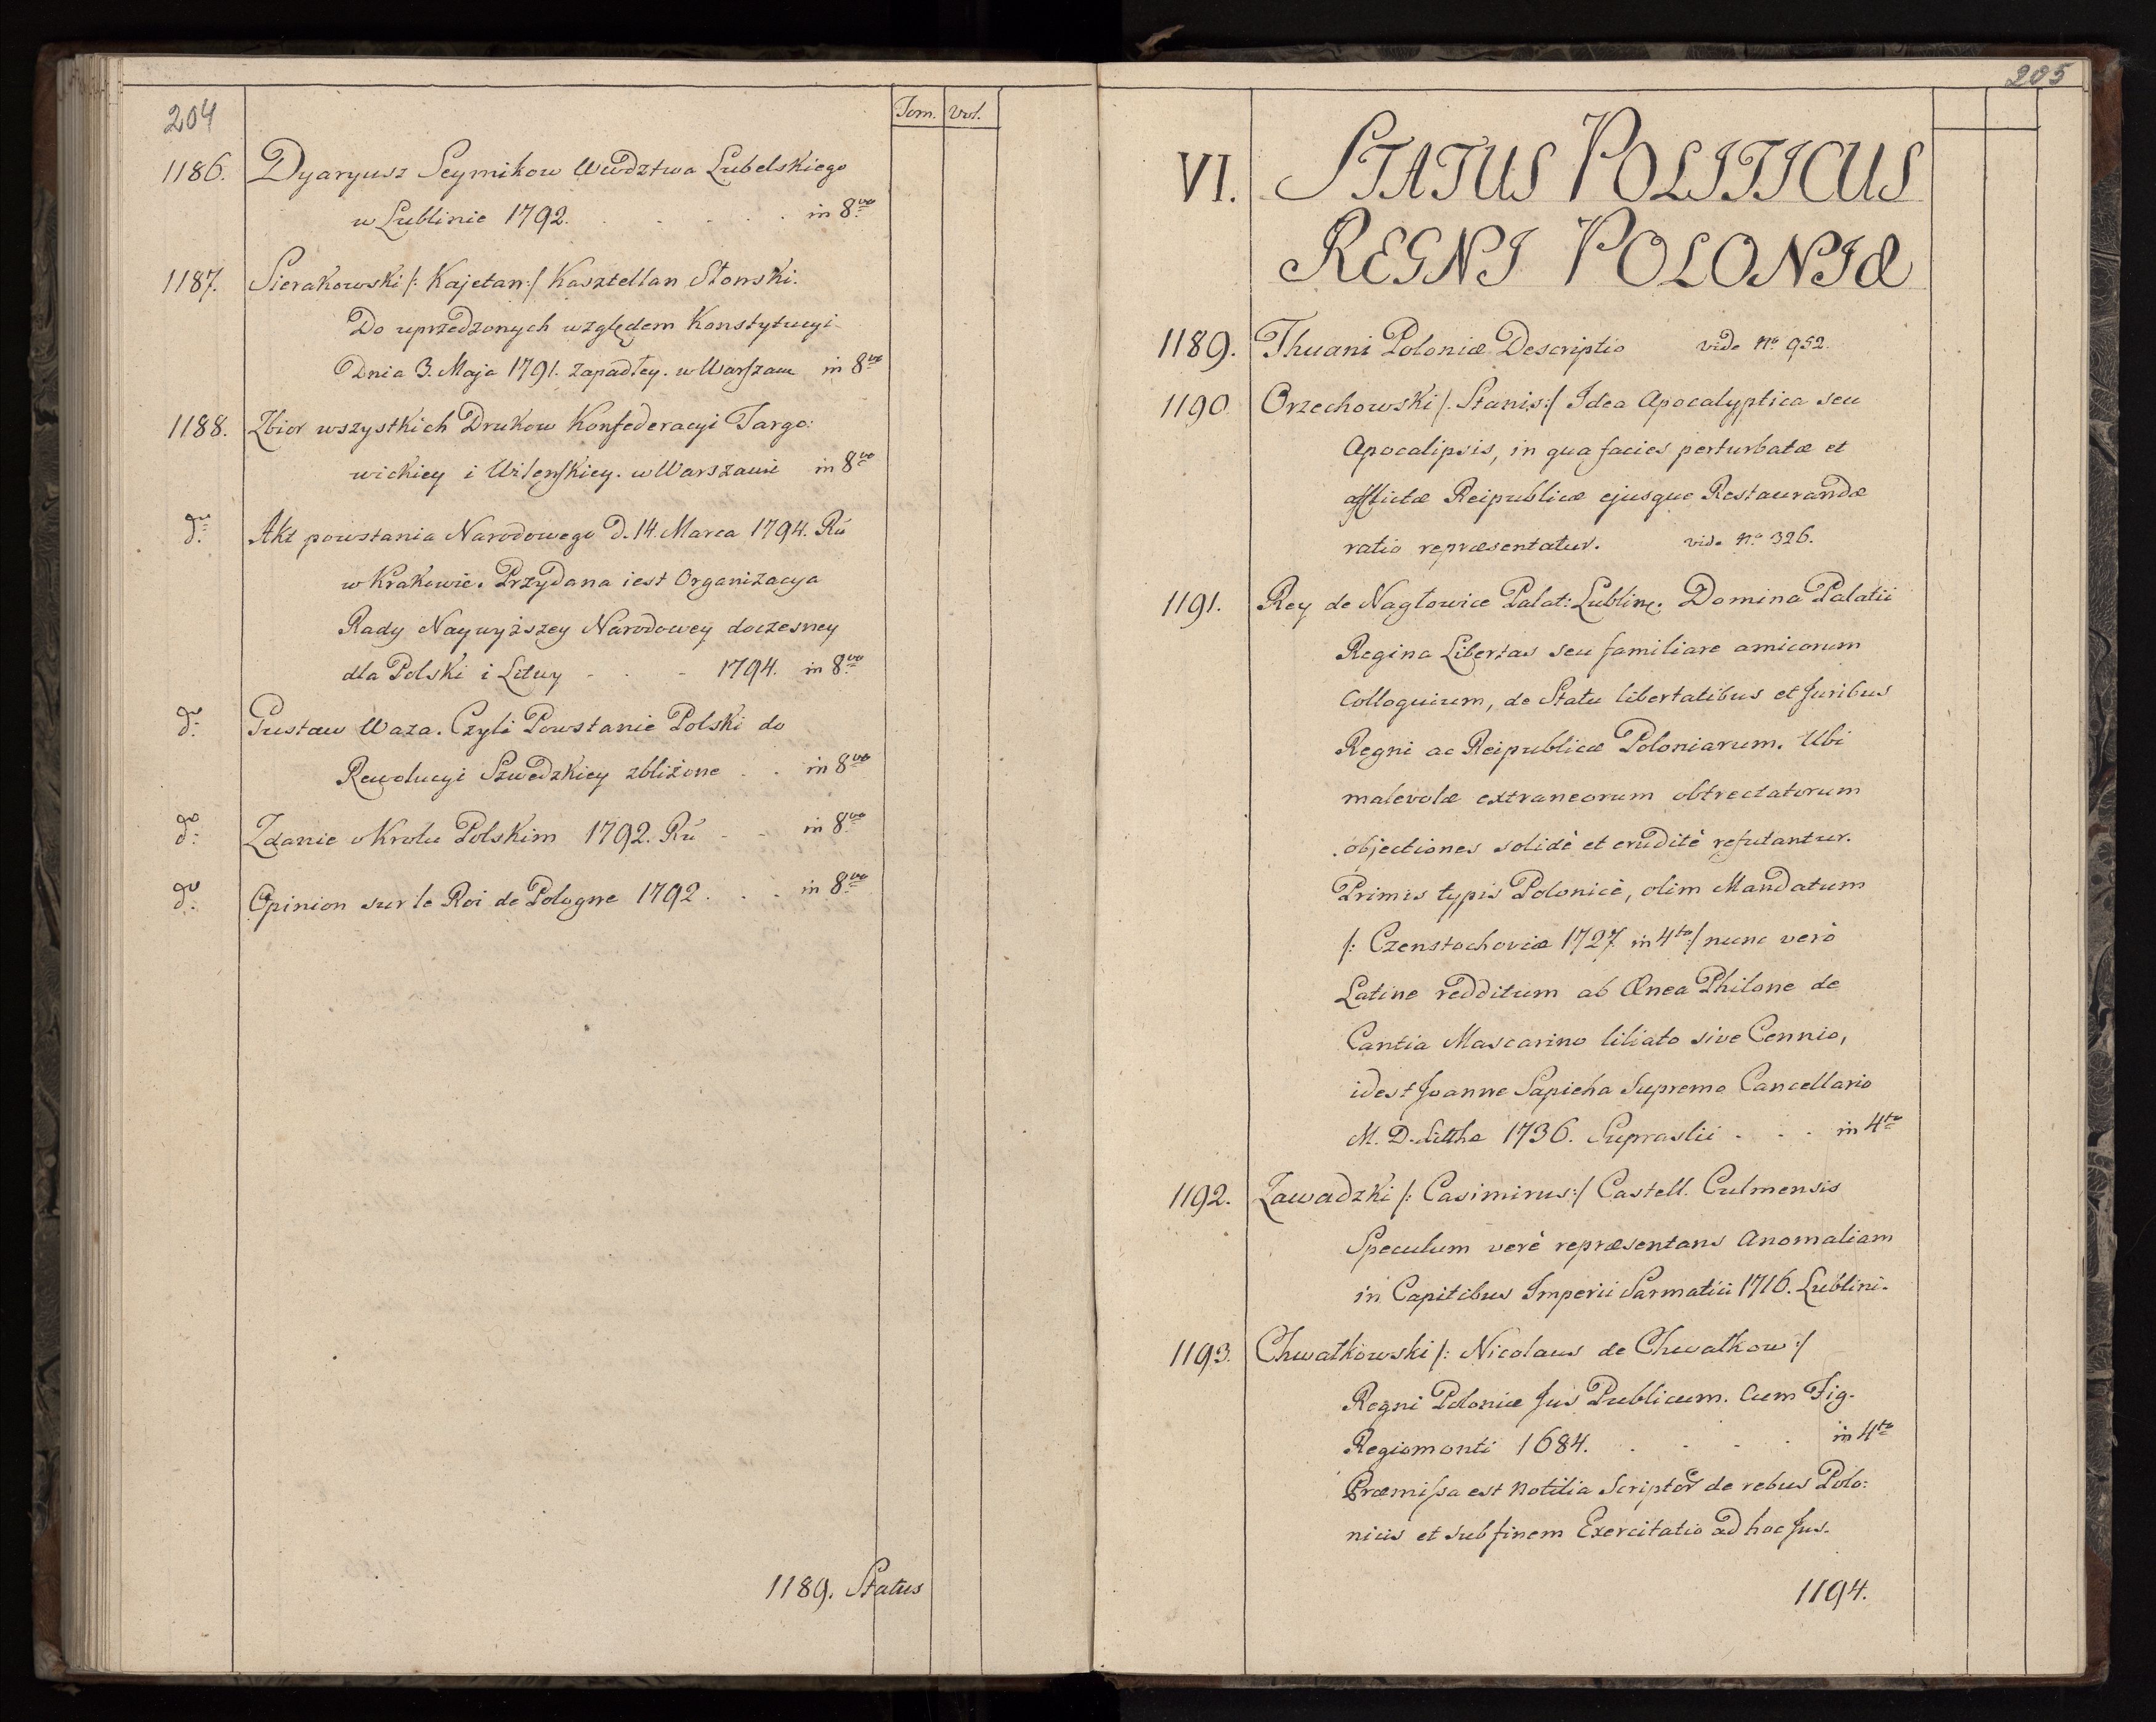 204
Tom. Vol.
1186. Dyaryusz Seymikow Wwdztwa Lubelskiego
w Lublinie 1792. . . . . . in 8vo
1187. Sierakowski /: Kajetan :/ Kasztellan Słonski.
Do uprzedzonych względem Konstytucyi
Dnia 3. Maja 1791. zapadłey. w Warszaw in 8vo
1188. Zbior wszystkich Drukow Konfederacyi Targo:
wickiey i Wileńskiey. w Warszawie in 8vo
do Akt powstania Narodowego D. 14. Marca 1794. Ru
w Krakowie. Przydana iest Organizacya
Rady Naywyższey Narodowey doczesney
dla Polski i Litwy - . - 1794. in 8vo
do Gustaw Waza. Czyli Powstanie Polski do
Rewolucyi Szwedzkiey zbliżone . . in 8vo
do Zdanie o Krolu Polskim 1792. Ru - - in 8vo
do Opinion sur le Roi de Pologne 1792 . . . in 8vo
1189. Status
205
VI. STATUS POLITICUS
REGNI POLONIÆ
1189. Thuani Poloniæ Descriptio vide No 952.
1190 Orzechowski /: Stanis :/ Idea Apocalyptica seu
Apocalipsis, in qua facies perturbatæ et
afflictæ Reipublicæ ejusque Restaurandæ
ratio repræsentatur. vide No 326.
1191. Rey de Nagłowice Palat: Lublin. Domina Palatii
Regina Libertas seu familiare amicorum
Colloquium, de Statu libertatibus et Juribus
Regni ac Reipublicæ Poloniarum. Ubi
malevolæ extraneorum obtrectatorum
objectiones solidè et eruditè refutantur.
Primis typis Polonicè, olim Mandatum
/: Czenstochoviæ 1727. in 4to :/ nunc verò
Latine redditum ab Ænea Philone de
Cantia Mascarino liliato sive Cennio,
idest Joanne Sapieha Supremo Cancellario
M. D. Litthæ 1736. Supraslii . . . in 4to
1192. Zawadzki /: Casimirus :/ Castell. Culmensis
Speculum verè repræsentans Anomaliam
in Capitibus Imperii Sarmatici 1716. Lublini.
1193. Chwałkowski /: Nicolaus de Chwalkow :/
Regni Poloniæ Jus Publicum. Cum Fig.
Regiomonti 1684. . . . . in 4to
Præmissa est Notitia Scriptor de rebus Polo:
nicis et sub finem Exercitatio ad hoc Jus.
1194.